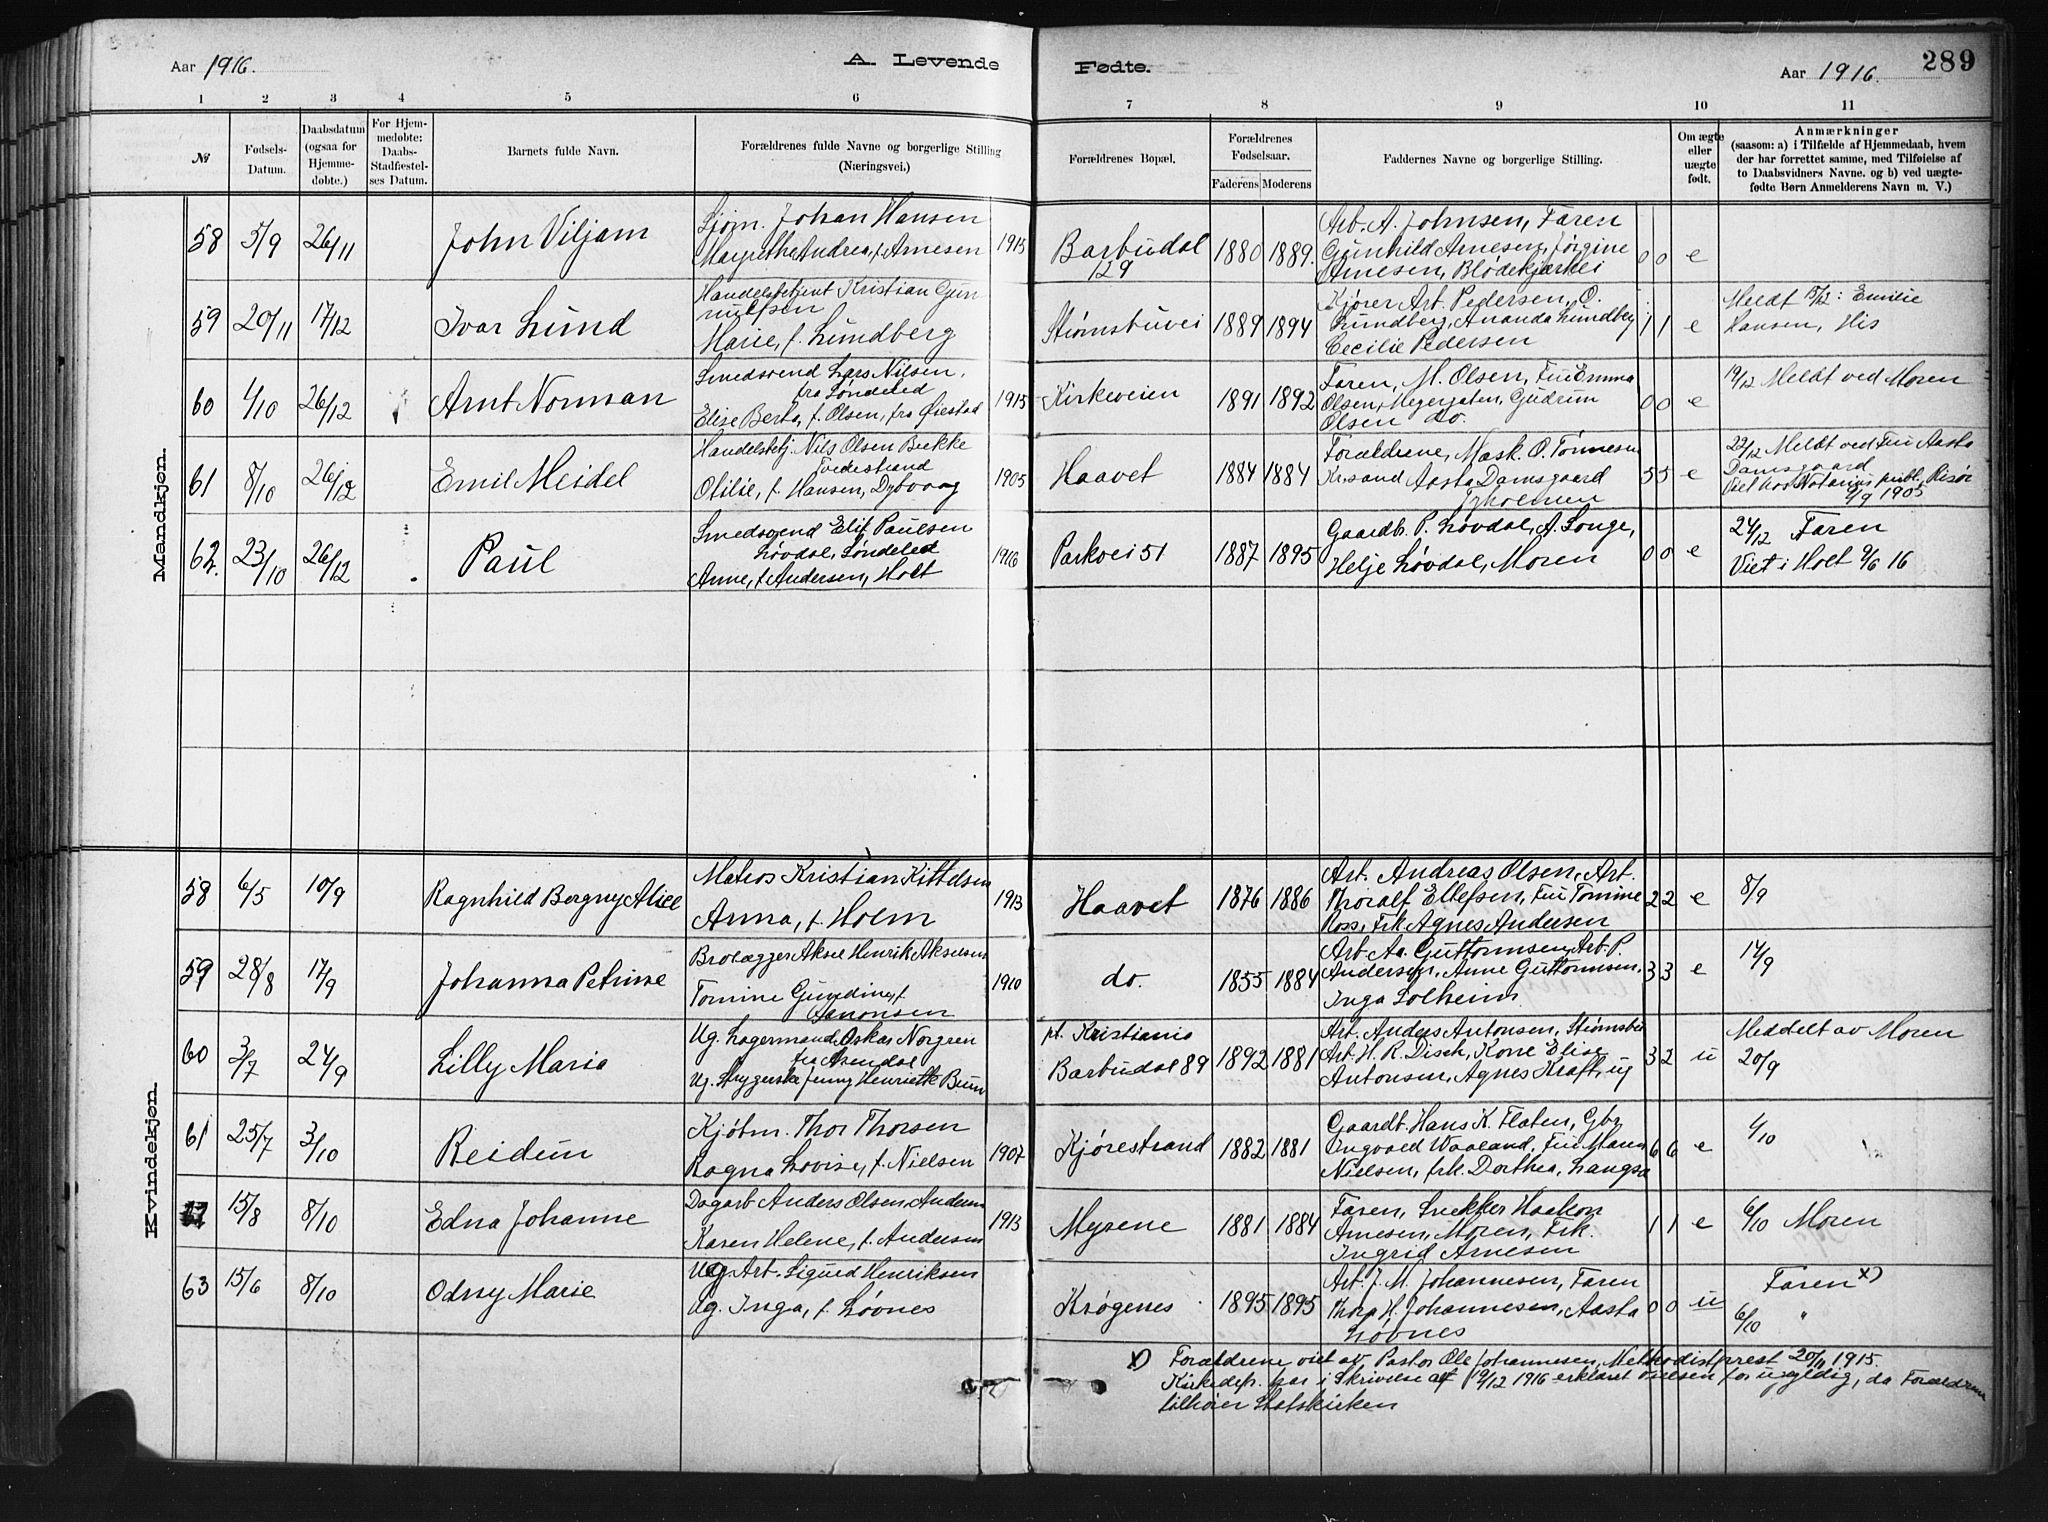 Aar 1916.
A. Levende Fødte.
Aar 1916.
289
1 2 3 4 5 6 7 8 9 10 11
№
Fødsels-Datum.
Daabsdatum (ogsaa for Hjemmedøbte.)
For Hjemmedøbte: Daabs-Stadfæstelses Datum.
Barnets fulde Navn.
Forældrenes fulde Navne og borgerlige Stilling (Næringsvei.)
Forældrenes Bopæl.
Forældrenes Fødselsaar.
Faderens Moderens
Faddernes Navne og borgerlige Stilling.
Om ægte eller uægte født.
Anmærkninger
(saasom: a) i Tilfælde af Hjemmedaab, hvem
der har forrettet samme, med Tilføielse af
to Daabsvidners Navne. og b) ved uægte-
fødte Børn Anmelderens Navn m. V.)
Mandkjøn.
58 5/9 26/11 John Viljam
Sjøm. Johan Hansen
Margrethe Andrea, f. Arnesen 1915
Barbudal 129
1880 1889.
Arb. A. Johnsen, Faren
Gunhild Arnesen, Jørgine
Arnesen, Blødekjærkei
0 0 e
59 20/11 17/12 Ivar Lund
Handelsbetjent Kristian Gun
nulfsen
Marie, f. Lundberg
Strømsbuvei
1889 1894
Kjører Art. Pedersen, O.
Lundberg, Ananda Lundberg
Cecilie Pedersen
1 1 e
Meldt 15/12: Emilie
Hansen, His
60 4/10 26/12 Arnt Norman
Smedsvend Lars Nilsen,
fra Søndeled
Elise Berta, f. Olsen, fra Øiestad 1915
Kirkeveien
1891 1892
Faren, M. Olsen, Fru Emma
Olsen, Megergaten, Gudrun
Olsen do.
0 0 e
19/12 Meldt ved Moren
61 8/10 26/12 Emil Meidel
Handelsbetj. Nils Olsen Bekke
Tvedestrand
Otilie, f. Hansen, Dybvaag 1905
Haavet
1884 1884
Forældrene, Mask. O. Tønnesen
Kr.sand Aasta Damsgaard
5 5 e
22/12 Meldt ved Fru Aasta
Damsgaard
Viet hos Notarius publ., Risør
4/9 1905
62. 23/10 26/12 Paul
Smedsvend Elif Paulsen
Løvdal, Søndeled
Anne, f. Andersen, Holt 1916
Parkvei 51
1887 1895
Gaardb. P. Løvdal, A. Songe,
Helje Løvdal, Moren
0 0 e
24/12 Faren
Viet i Holt 9/6 16
Kvindekjøn.
58 6/5 10/9 Ragnhild Borgny Alise
Matros Kristian Kittelsen
Anna, f. Holm 1913
Haavet
1876 1886
Art. Andreas Olsen, Art.
Thoralf Ellefsen, Fru Tomine
Ross, Frk Agnes Andersen
2 2 e
8/9
59 28/8 17/9 Johanna Petrine
Brolægger Aksel Henrik Akselsen
Tomine Gundine, f.
Aanonsen 1910
do.
1855 1884
Arb. Aa. Guttormsen, Arb. P.
Andersen, Anne Guttormsen,
Inga Solheim
3 3 e
14/9
60 3/7 24/9 Lilly Maria
Ug. Lagermand Oskar Norgren
fra Arendal
Ug. Strygerske Jenny Henriette Buun
pt. Kristiania
Barbudal 89
1892 1881
Art. Anders Antonsen, Strømsbu
Art. H. R. Disch, Kone Elise
Antonsen, Agnes Kraft, ug
3 2 u
Meddelt av Moren
20/9
61 25/7 3/10 Reidun
Kjøbm. Thor Thorsen
Ragna Lovise, f. Nielsen 1907
Kjørestrand
1882 1881
Gaardb. Hans K. Flaten, Gbr.
Ingvald Waaland, Fru Maren
Nielsen, frk. Dorthea, Langsæ
6 6 e
4/10
15/8 8/10 Edna Johanne
Dagarb. Anders Olsen Andersen
Karen Helene, f. Andersen 1913
Myrene
1881 1884
Faren, Snekker Haakon
Arnesen, Moren, Frk.
Ingrid Arnesen
1 1 e
6/10 Moren
63 15/6 8/10 Odny Marie
Ug. Art. Sigurd Henriksen
Ug. Inga, f. Løvnes
Krøgenes
1895 1895
Art. J. M. Johannesen, Faren
Thora H. Johannesen, Aasta
Løvnes
0 0 u
Faren x)
6/10 "
x) Forældrene viet av Pastor Ole Johannesen, Methodistprest 20/11 1915.
Kirkedep. har i Skrivelse af 19/12 1916 erklært vielsen for ugyldig, da Forældrene
tilhører Statskirken